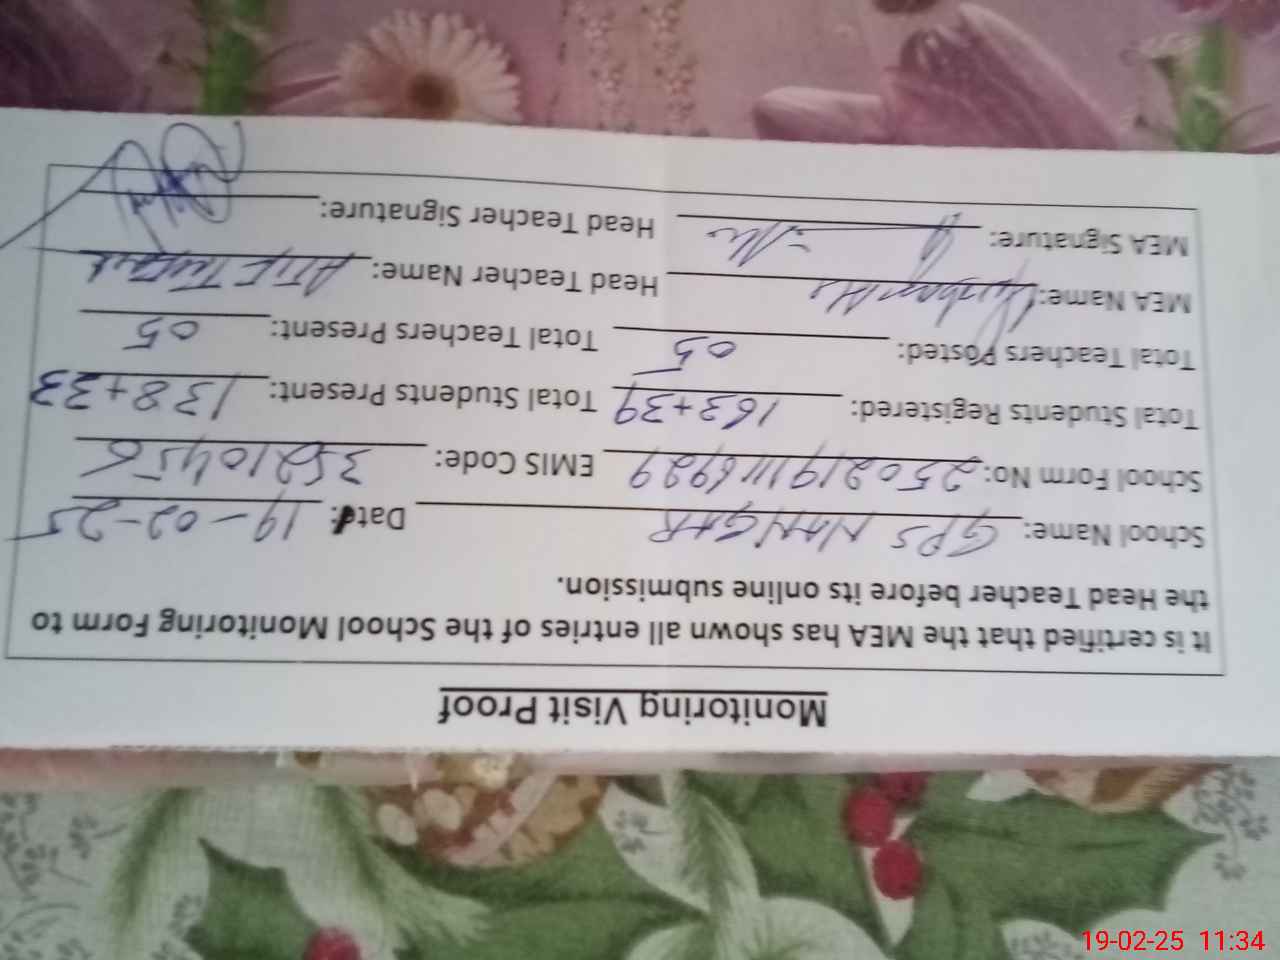 Monitoring Visit Proof
It is certified that the MEA has shown all entries of the School Monitoring Form to
the Head Teacher before its online submission.
School Name: GPS NANGAR Date: 19-02-25
School Form No: EMIS Code:
Total Students Registered: 163+39 Total Students Present: 138+33
Total Teachers Posted: 05 Total Teachers Present: 05
MEA Name: Head Teacher Name:
MEA Signature: Head Teacher Signature:
19-02-25 11:34